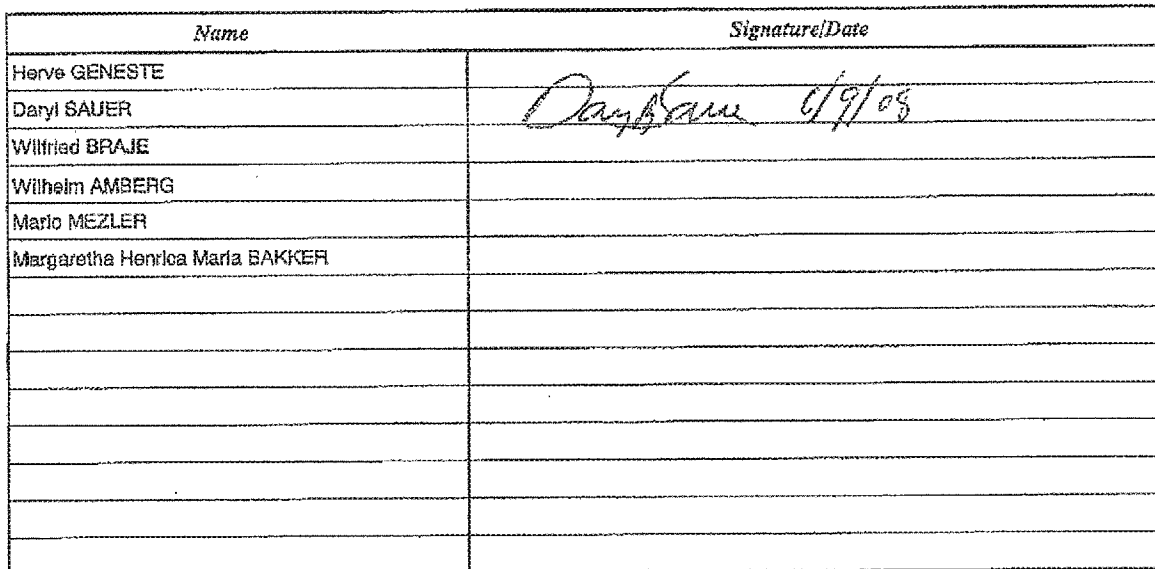 Name Signature/Date
Herve GENESTE
Daryl SAUER Daryl Sauer 6/9/08
Wilfried BRAJE
Wilhelm AMBERG
Mario MEZLER
Margaretha Henrica Maria BAKKER